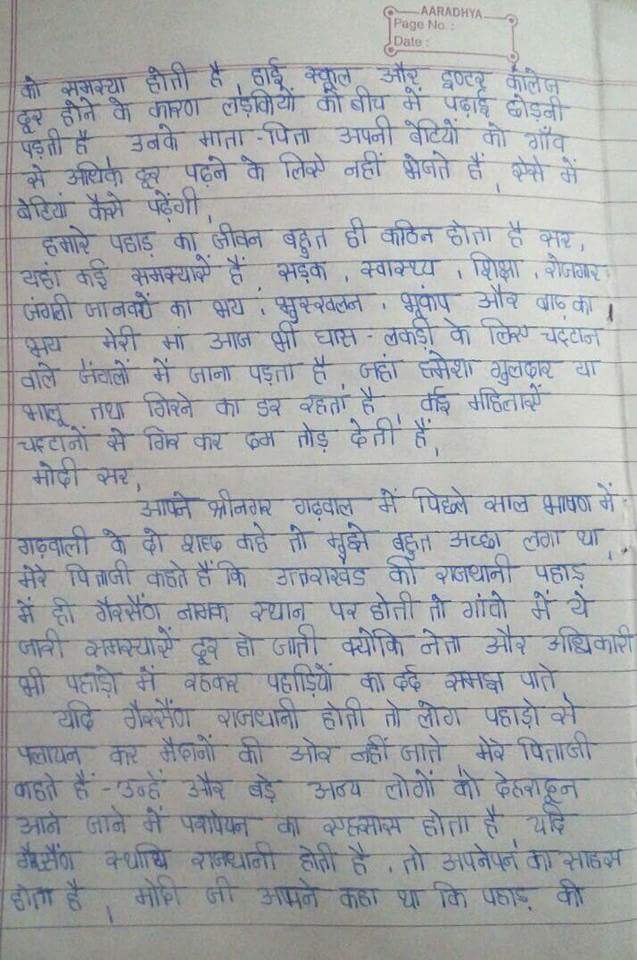 AARADHYA
Page No. :
Date :
को समस्या होती है, हाई स्कूल और इण्टर कॉलेज
दूर होने के कारण लड़कियों को बीच में पढ़ाई छोड़नी
पड़ती है उनके माता-पिता अपनी बेटियों को गाँव
से अधिक दूर पढ़ने के लिए नहीं भेजते हैं, ऐसे में
बेटियां कैसे पढ़ेंगी,
हमारे पहाड़ का जीवन बहुत ही कठिन होता है सर,
यहां कई समस्यायें हैं, सड़क, स्वास्थ्य, शिक्षा, रोजगार
जंगली जानवरों का भय, भुस्खलन, भूकंप और बाढ़ का
भय मेरी मां आज भी घास-लकड़ी के लिए चट्टान
वाले जंगलों में जाना पड़ता है, जहां हमेशा गुलदार या
भालू तथा गिरने का डर रहता है, कई महिलाऐं
चट्टानों से गिर कर दम तोड़ देती हैं,
मोदी सर,
आपने श्रीनगर गढ़वाल में पिछले साल भाषण में
गढ़वाली के दो शब्द कहे तो मुझे बहुत अच्छा लगा था,
मेरे पिताजी कहते हैं कि उत्तराखंड की राजधानी पहाड़
में ही गैरसैंण नामक स्थान पर होती तो गांवो में ये
जारी समस्याऐं दूर हो जाती क्योकि नेता और अधिकारी
भी पहाड़ो में रहकर पहाड़ियों का दर्द समझ पाते
यदि गैरसैंण राजधानी होती तो लोग पहाड़ो से
पलायन कर मैदानों की ओर नहीं जाते मेरे पिताजी
कहते हैं - उन्हें और बड़े अन्य लोगों को देहरादून
आने जाने में परायेपन का एहसास होता है, यदि
गैरसैंण स्थायि राजधानी होती है, तो अपनेपन का साहस
होता है, मोदी जी आपने कहा था कि पहाड़ की